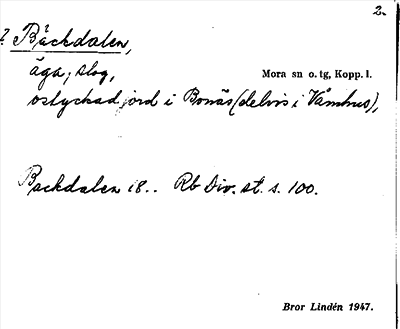 2.
? Bäckdalen,
äga, slog,
Mora sn o. tg, Kopp. l.
ostyckad jord i Bonäs (delvis i Våmhus),
Backdalen 18.. Rb Div. st. s. 100.
Bror Lindén 1947.